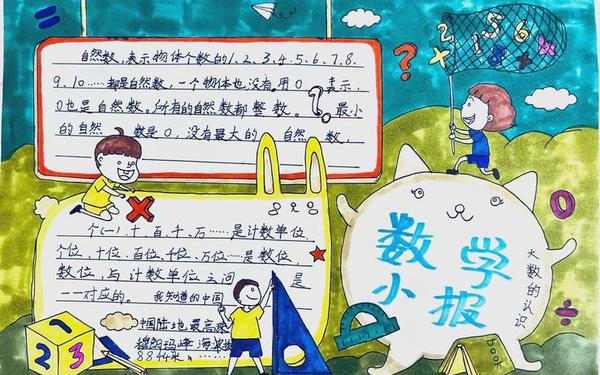 自然数,表示物体个数的1、2、3、4、5、6、7、8、
9、10……都是自然数,一个物体也没有,用0 表示,
0也是自然数。所有的自然数都整数。 最小
的自然 数是0,没有最大的 自然 数,
个(一)、十、百、千、万……是计数单位,
个位、十位、百位、千位、万位……是数位,
数位,与计数单位之间 是
一一对应的。 我知道的中国
中国陆地最高
穆朗玛峰海
8844米
数学
小报
大数的认识
1 2 3